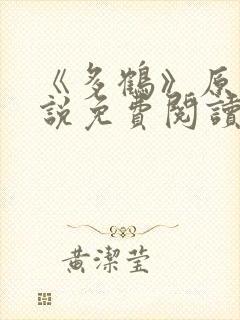 《多鶴》原
說免費閱讀
黃潔瑩